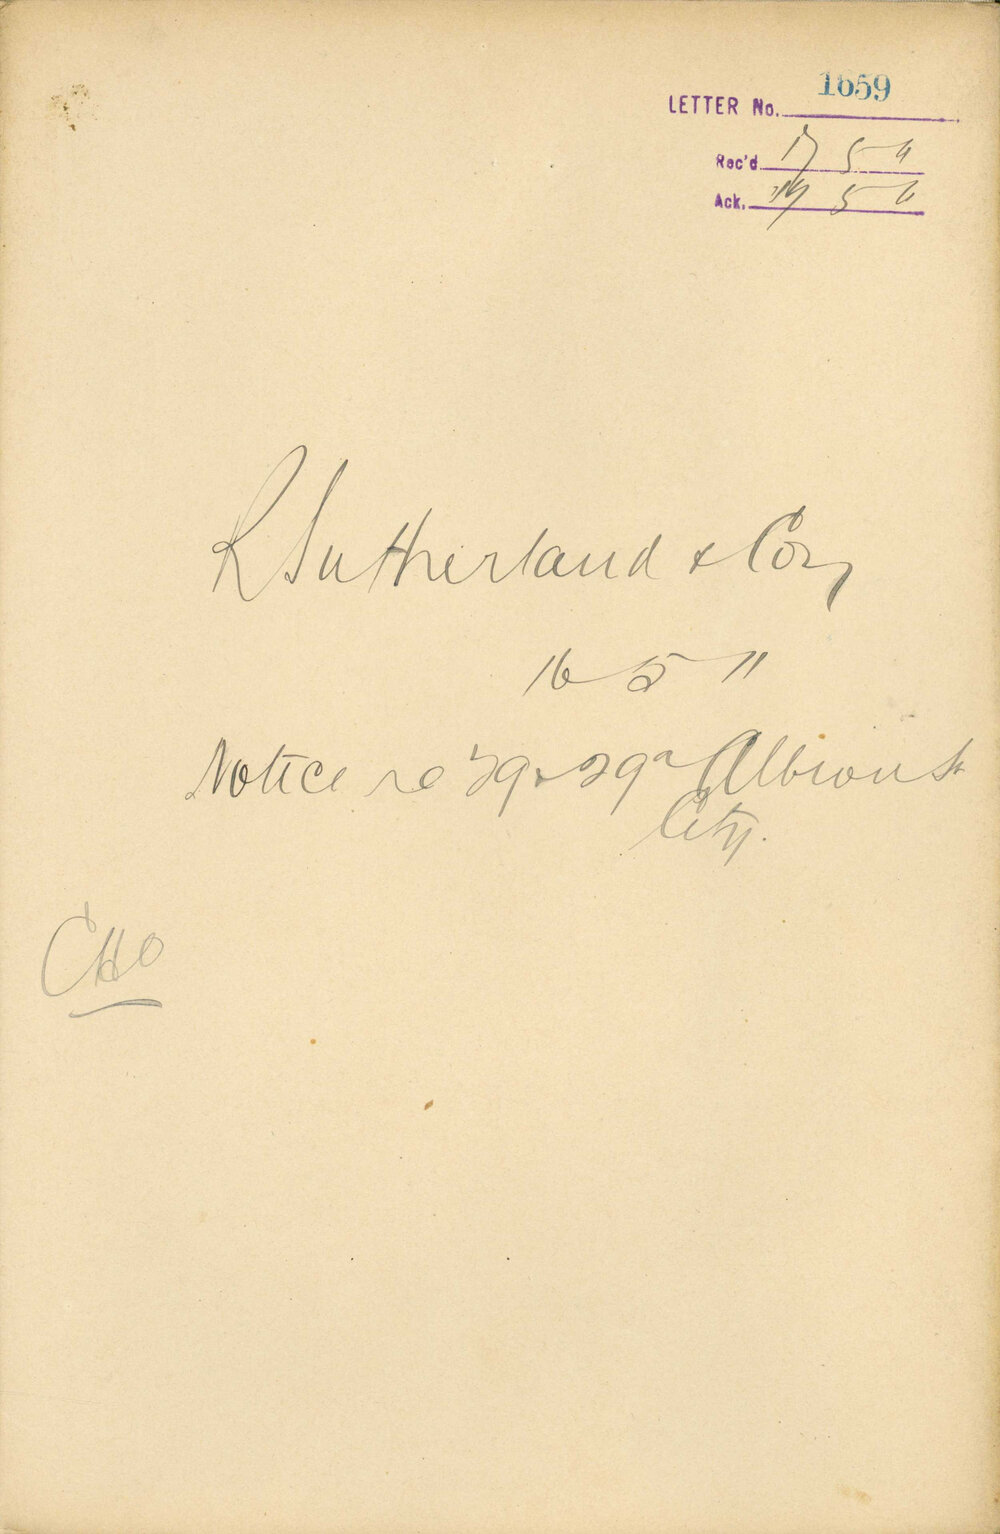 LETTER No. 1659
Rec'd 17 5 11
Ack. 5 11
R Sutherland & Coy
16 5 11
Notice re 29 & 29a Albion St
City.